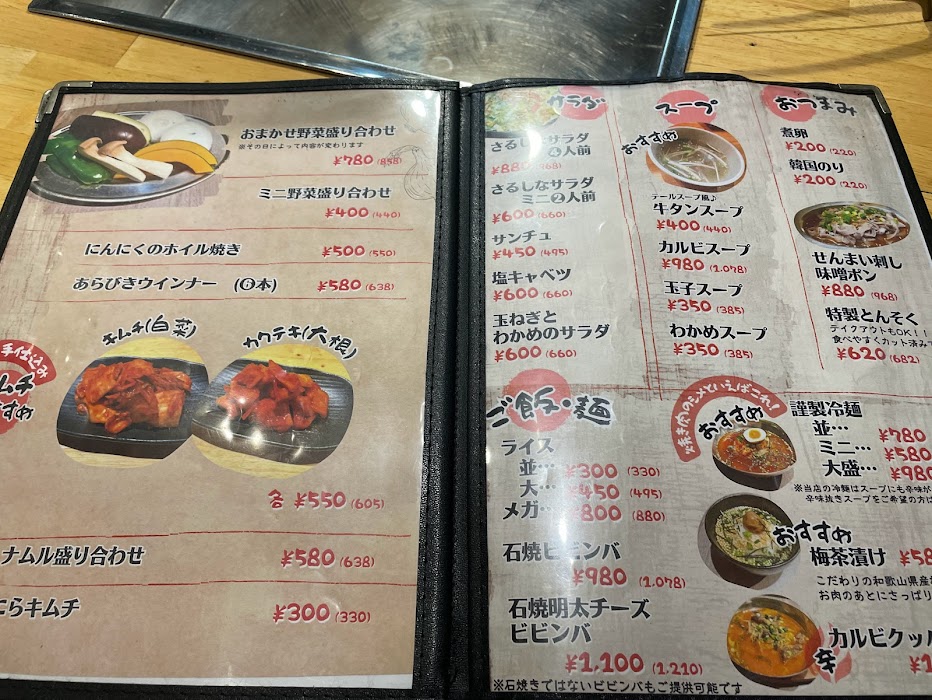 おまかせ野菜盛り合わせ
※その日によって内容が変わります
¥780 (858)
ミニ野菜盛り合わせ
¥400 (440)
にんにくのホイル焼き ¥500 (550)
あらびきウインナー (6本) ¥580 (638)
キムチ(白菜)
カクテキ(大根)
手仕込み
ムチ
すめ
各 ¥550 (605)
ナムル盛り合わせ ¥580 (638)
にらキムチ ¥300 (330)
サラダ
さるしなサラダ
4人前
¥880 (968)
さるしなサラダ
ミニ2人前
¥600 (660)
サンチュ
¥450 (495)
塩キャベツ
¥600 (660)
玉ねぎと
わかめのサラダ
¥600 (660)
スープ
おすすめ
テールスープ風♪
牛タンスープ
¥400 (440)
カルビスープ
¥980 (1.078)
玉子スープ
¥350 (385)
わかめスープ
¥350 (385)
おつまみ
煮卵
¥200 (220)
韓国のり
¥200 (220)
せんまい刺し
味噌ポン
¥880 (968)
特製とんそく
テイクアウトもOK!!
食べやすくカット済みで
¥620 (682)
ご飯・麺
ライス
並… ¥300 (330)
大… ¥450 (495)
メガ… ¥800 (880)
石焼ビビンバ
¥980 (1.078)
石焼明太チーズ
ビビンバ
¥1.100 (1.210)
※石焼きではないビビンバもご提供可能です
焼き肉のシメといえばこれ!
おすすめ
謹製冷麺
並… ¥780
ミニ… ¥580
大盛… ¥980
※当店の冷麺はスープにも辛味が
辛味抜きスープをご希望の方は
おすすめ
梅茶漬け ¥58
こだわりの和歌山県産
お肉のあとにさっぱり
カルビクッパ
辛
¥1